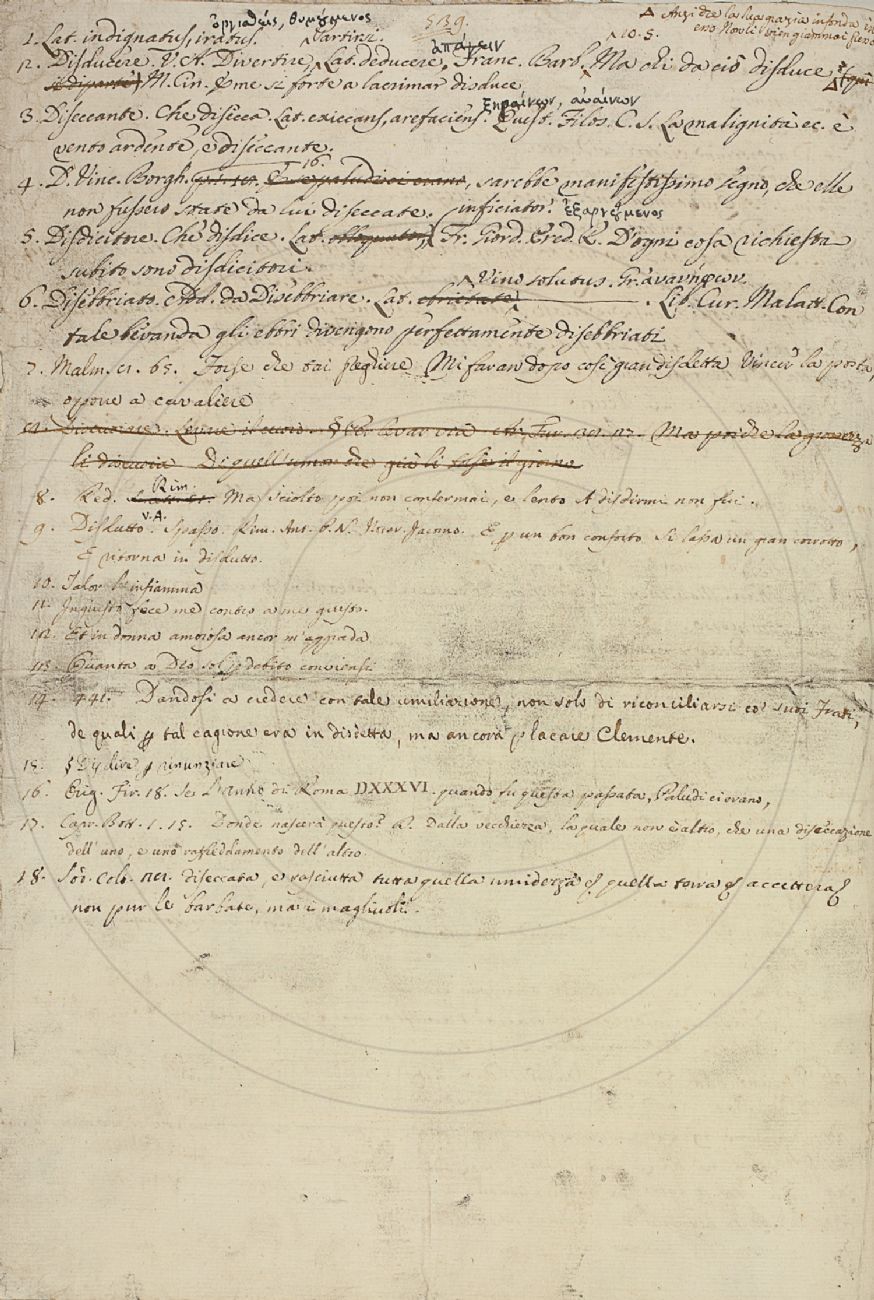 539.
Δ Anzi che la sua grazia infonda in
1. Lat. indignatus, iratus. ὀργισθείς, θυμούμενος
2. Disducere. V. A. Divertire, Partirsi. Lat. deducere, ἀπάγειν Franc. Barb. 10. 5. Ma chi da ciò disduce
M. Cin. E me sì forte a lacrimar disduce
3. Diseccante. Che disecca. Lat. exiccans, arefaciens. ξηραίνων, αὐαίνων Quist. Filos. C. S. La malignità ec. è
vento ardente, e diseccante.
4. D. Vinc. Borgh. 16. sarebbe manifestissimo segno, che elle
non fussero state da lui diseccate.
5. Disdicitore. Che disdice. Lat. inficiator. ἐξαρνούμενος Fr. Giord. Pred. R. D'ogni cosa richiesta
subito sono disdicitori.
6. Disebbriato. Add. da Disebbriare. Lat. Vino solutus. Gr. ἀνανήφων. Lib. Cur. Malatt. Con
tale bevanda gli ebbri divengono perfettamente disebbriati
7. Malm. 65. Forse che tai Mi favan dopo così gran disdetta Vincer la posta,
oppure a cavaliere
li discuoia Di quell'umor che già li tolse il giorno
8. Red. Rim. Ma sciolto poi non confermai, e lento A disdirmi non fui.
9. Disdutto. V. A. Spasso. Rim. Ant. P. N. Jacomo. E, per un bon conforto Si lassa un gran corrotto,
E ritorna in disdutto.
10. Talor l'infiamma
11. Inquisto fece me contro a me giusto.
12. Et in donna amorosa ancor m'aggrada
13. Quanta a Dio sol per debito conviensi
14. 441. Dandosi a credere con tale umiliazione, non solo di riconciliarsi co' suoi Frati,
de quali per tal cagione era in disdetta, ma ancora placare Clemente.
15. § Disdire per rinunziare
16. Orig. Fir. 18. Se l'anno di Roma DXXXVI. quando fu questa passata, Paludi ci erano,
17. Capr. Bott. 1. 15. Donde nascerà questo? R. Dalla vecchiezza, la quale non è altro, che una diseccazione
dell'uno, e uno raffreddamento dell'altro.
18. Sod. Colt. diseccata, e rasciutta tutta quella umidezza e quella terra accetterà
non pur le barbate, ma i magliuoli.